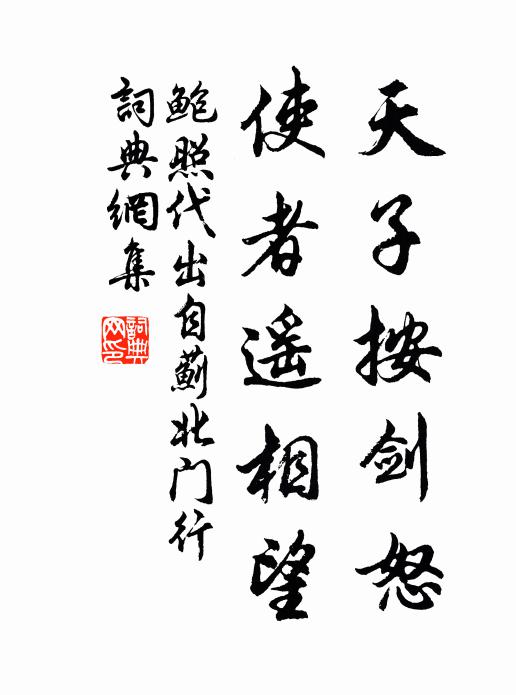 天子按剑怒
使者遥相望
鲍照代出自蓟北门行
詞典網集
詞典
网印